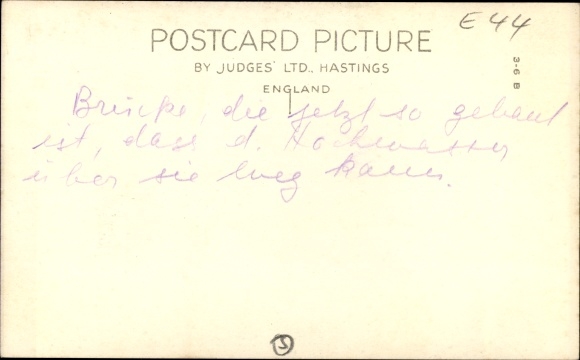 E44
POSTCARD PICTURE
BY JUDGES' LTD., HASTINGS
ENGLAND
3-6 B
Brücke, die jetzt so gebaut
ist, dass d. Hochwasser
über sie weg kann.
5